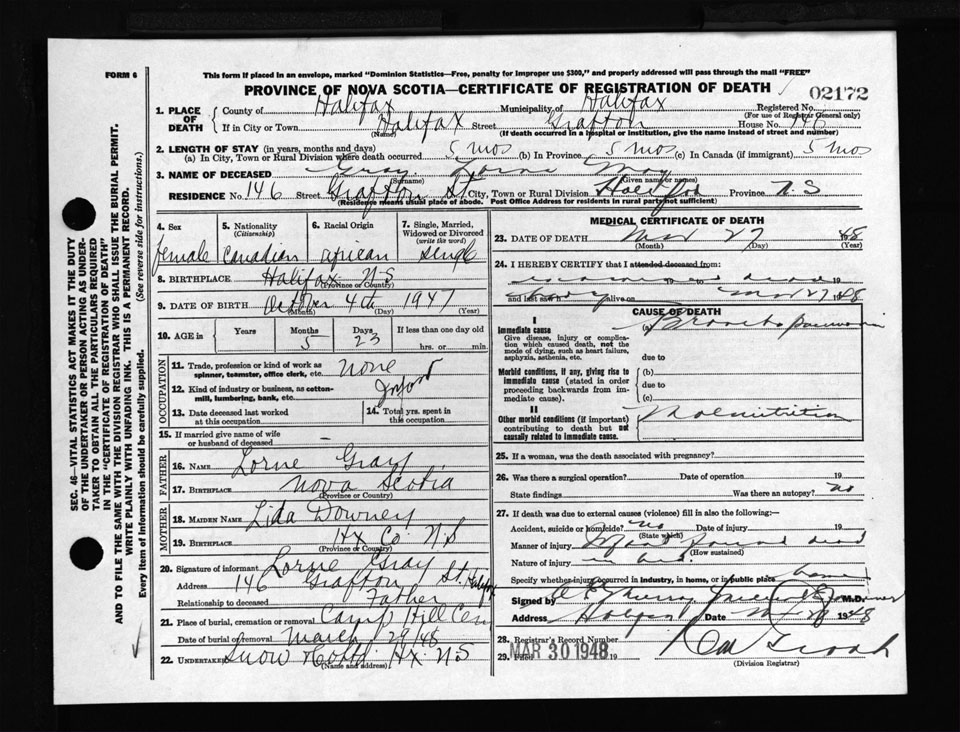 FORM 6
This form if placed in an envelope, marked "Dominion Statistics—Free, penalty for improper use $300," and properly addressed will pass through the mail "FREE"
PROVINCE OF NOVA SCOTIA—CERTIFICATE OF REGISTRATION OF DEATH
02172
SEC. 46—VITAL STATISTICS ACT MAKES IT THE DUTY
OF THE UNDERTAKER OR PERSON ACTING AS UNDER-
TAKER TO OBTAIN ALL THE PARTICULARS REQUIRED
IN THE "CERTIFICATE OF REGISTRATION OF DEATH"
AND TO FILE THE SAME WITH THE DIVISION REGISTRAR WHO SHALL ISSUE THE BURIAL PERMIT.
WRITE PLAINLY WITH UNFADING INK. THIS IS A PERMANENT RECORD.
Every item of information should be carefully supplied. (See reverse side for instructions.)
1. PLACE OF DEATH
County of Halifax Municipality of Halifax Registered No.
(For use of Registrar General only)
If in City or Town Halifax Street Grafton House No. 146
(Name) (If death occurred in a hospital or institution, give the name instead of street and number)
2. LENGTH OF STAY (in years, months and days)
(a) In City, Town or Rural Division where death occurred 5 mos (b) In Province 5 mos (c) In Canada (if immigrant) 5 mos
3. NAME OF DECEASED Gray Lorne May
(Surname) (Given name or names)
RESIDENCE No. 146 Street Grafton St City, Town or Rural Division Halifax Province N S
(Residence means usual place of abode. Post Office Address for residents in rural parts not sufficient)
4. Sex
female
5. Nationality
(Citizenship)
Canadian
6. Racial Origin
african
7. Single, Married, Widowed or Divorced
(write the word)
single
8. BIRTHPLACE Halifax N-S
9. DATE OF BIRTH October 4th 1947
(Month) (Day) (Year)
10. AGE in
Years
Months
5
Days
23
If less than one day old
hrs. or min.
OCCUPATION
11. Trade, profession or kind of work as spinner, teamster, office clerk, etc. none
12. Kind of industry or business, as cotton-mill, lumbering, bank, etc. Infant
13. Date deceased last worked at this occupation
14. Total yrs. spent in this occupation
15. If married give name of wife or husband of deceased –
FATHER
16. NAME Lorne Gray
17. BIRTHPLACE Nova Scotia
(Province or Country)
MOTHER
18. MAIDEN NAME Lida Downey
19. BIRTHPLACE Hx Co N.S
(Province or Country)
20. Signature of informant Lorne Gray
Address 146 Grafton St. Halifax
Relationship to deceased Father
21. Place of burial, cremation or removal Camp Hill Cem
Date of burial or removal March 29/48
22. Undertaker Snow & Co Ltd Hx N.S
(Name and address)
MEDICAL CERTIFICATE OF DEATH
23. DATE OF DEATH Mar 27 1948
(Month) (Day) (Year)
24. I HEREBY CERTIFY that I attended deceased from:
to 19
and last saw alive on Mar 27 1948
CAUSE OF DEATH
I
Immediate cause
Give disease, injury or complication which caused death, not the mode of dying, such as heart failure, asphyxia, asthenia, etc.
(a) Broncho pneumonia
due to
Morbid conditions, if any, giving rise to immediate cause (stated in order proceeding backwards from immediate cause).
(b)
due to
(c)
II
Other morbid conditions (if important) contributing to death but not causally related to immediate cause.
Malnutrition
25. If a woman, was the death associated with pregnancy?
26. Was there a surgical operation? Date of operation 19
State findings Was there an autopsy? no
27. If death was due to external causes (violence) fill in also the following:—
Accident, suicide or homicide? no Date of injury 19
(State which)
Manner of injury Infant found dead
(How sustained)
Nature of injury in bed.
Specify whether injury occurred in industry, in home, or in public place home
Signed by Murray Medical Examiner M.D.
Address Halifax Date Mar 1948
28. Registrar's Record Number
29. Filed MAR 30 1948 19
(Division Registrar)